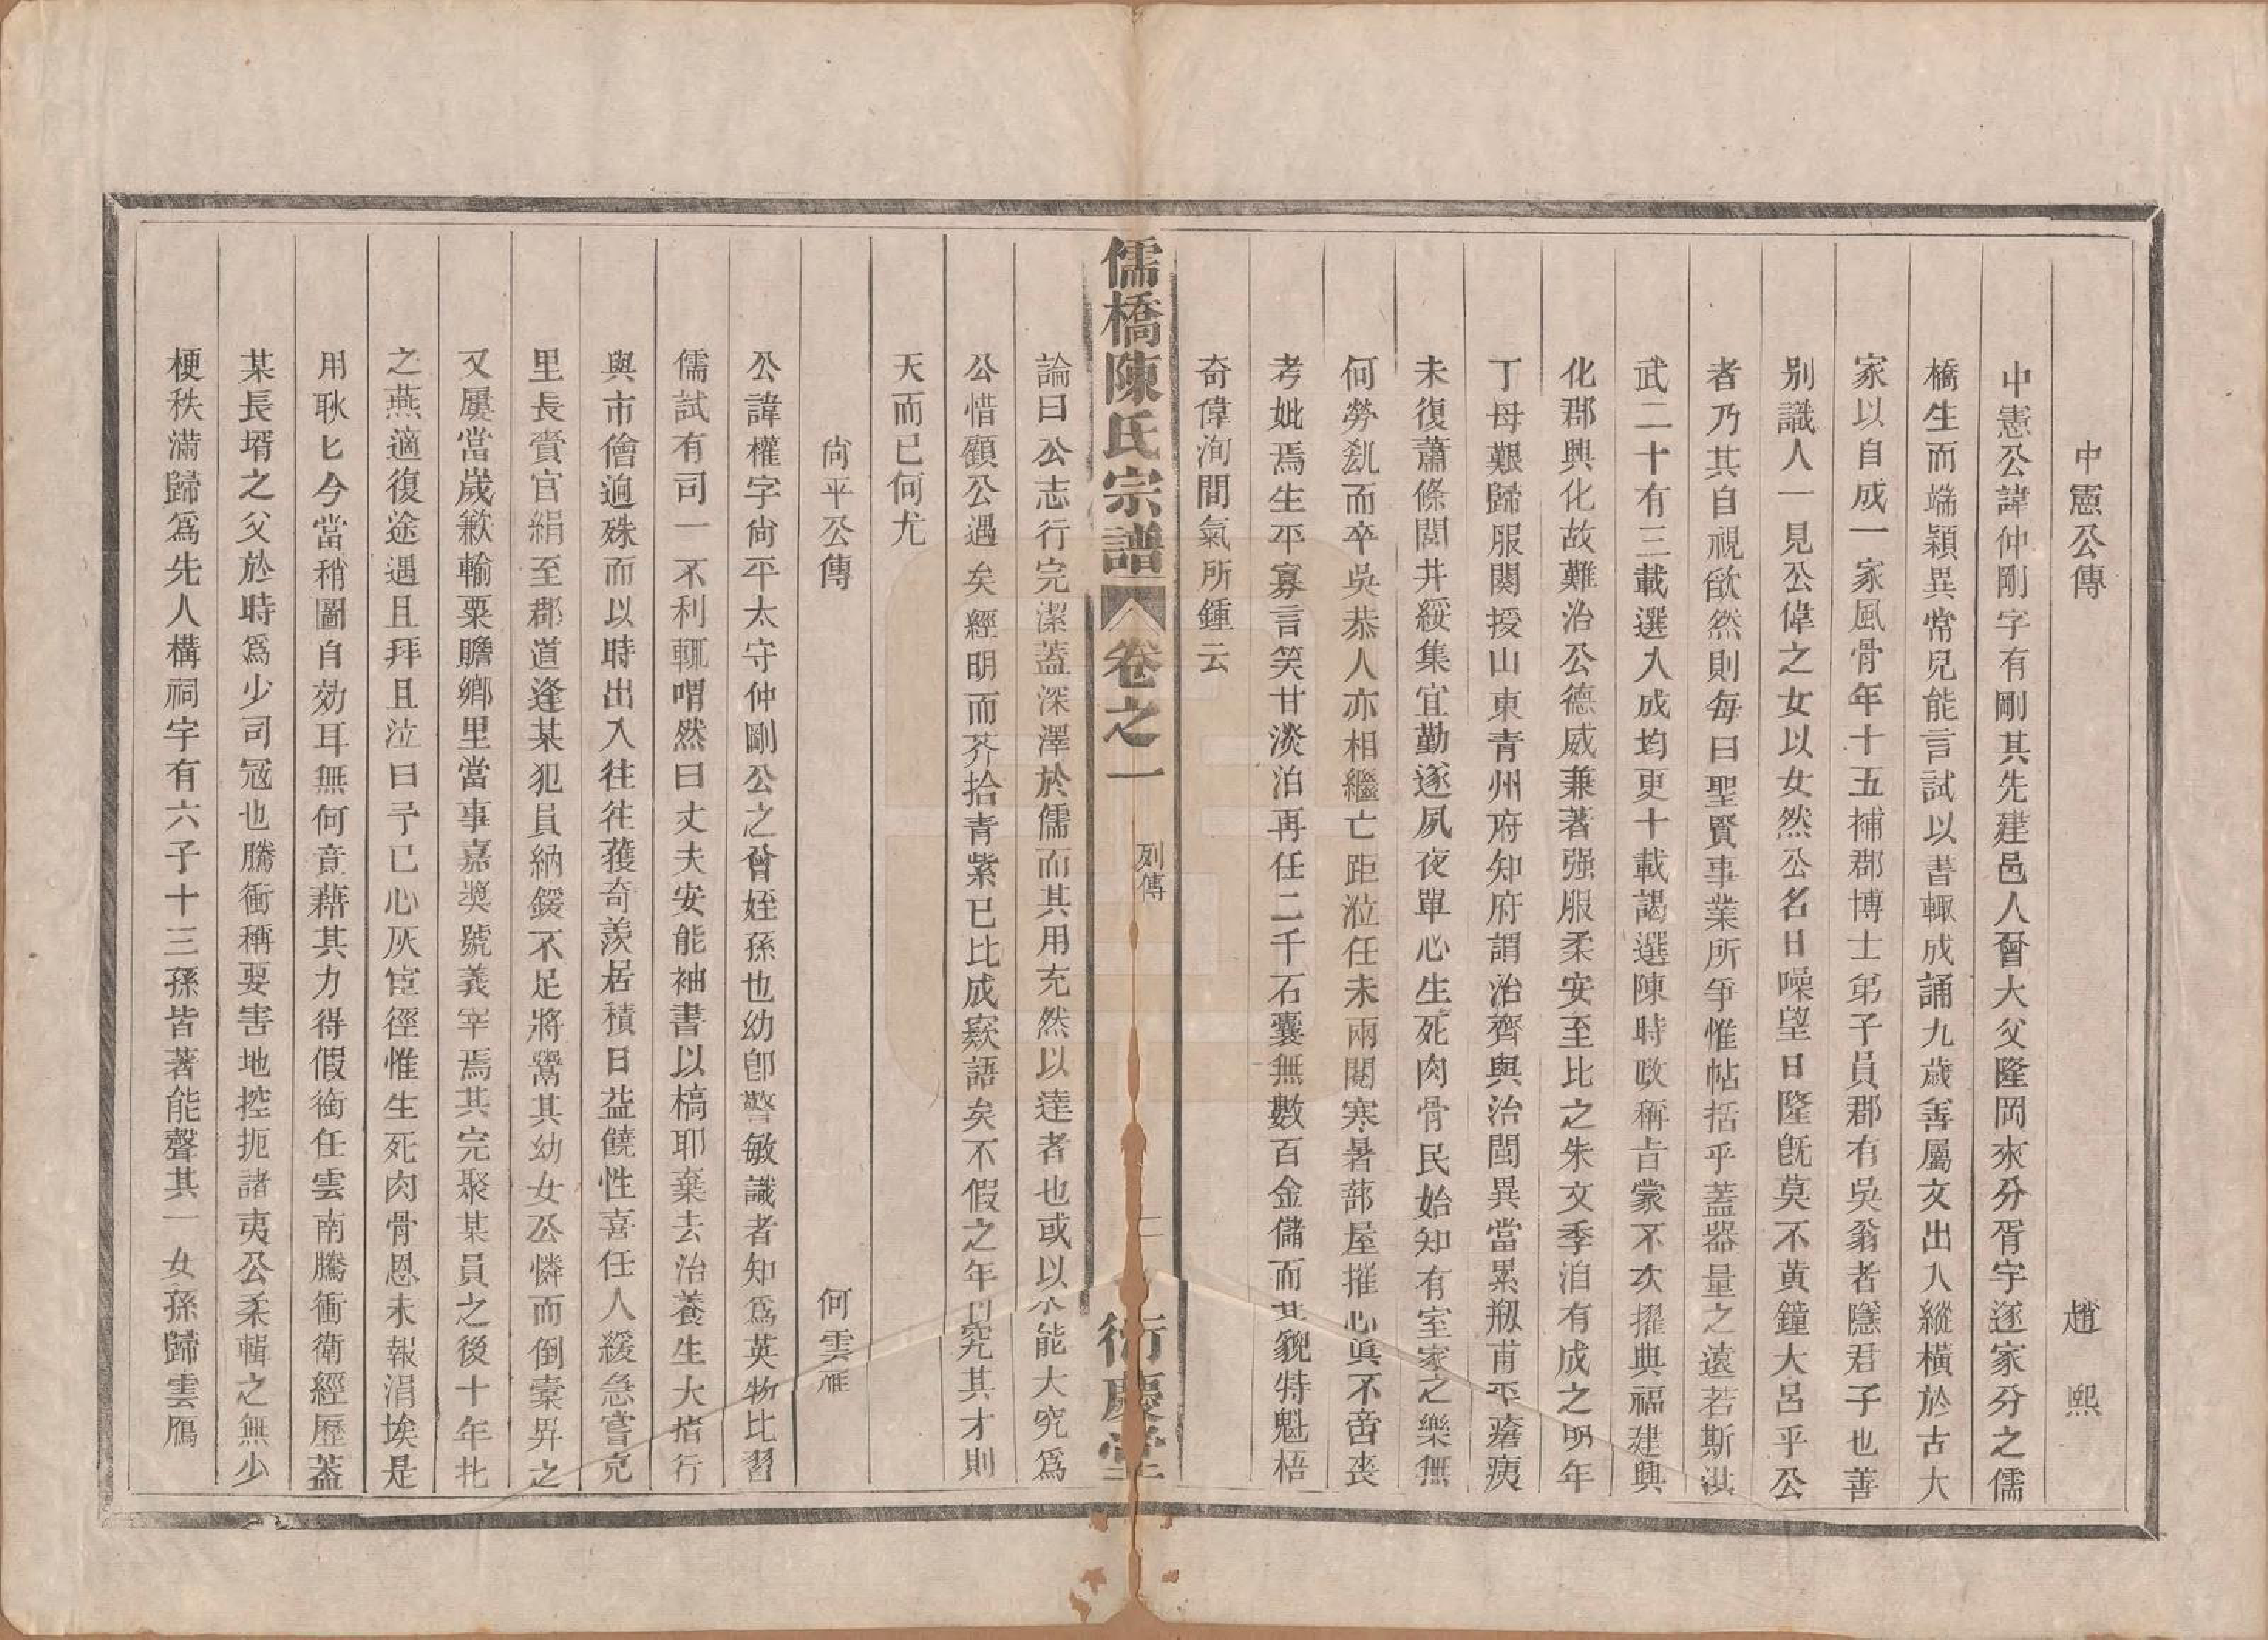 中憲公傳　趙熙
中憲公諱仲剛字有剛其先建邑人曾大父隆岡來分胥宇逐家分之儒
橋生而端穎異常兒能言試以書輒成誦九歲善屬文出入縱橫於古大
家以自成一家風骨年十五補郡博士弟子員郡有吳翁者隱君子也善
别識人一見公偉之女以女然公名日噪望日隆旣莫不黃鐘大呂乎公
者乃其自視欿然則每曰聖賢事業所爭惟帖括乎蓋器量之遠若斯淇
武二十有三載選入成均更十載謁選陳時政稱旨蒙不次擢典福建興
化郡興化故難治公德威兼著强服柔安至比之朱文季洎有成之明年
丁母艱歸服闋授山東青州府知府謂治齊與治閩異當累剏甫平瘡痍
未復蕭條閭井綏集宜勤逐夙夜單心生死肉骨民始知有室家之樂無
何勞勩而卒吳恭人亦相繼亡距涖任未兩閱寒暑蔀屋摧心眞不啻喪
考妣焉生平寡言笑甘淡泊再任二千石囊無數百金儲而其貌特魁梧
奇偉洵間氣所鍾云
儒橋陳氏宗譜　卷之一　列傳　二　衍慶堂
論曰公志行完潔蓋深澤於儒而其用充然以達者也或以不能大究爲
公惜顧公遇矣經明而芥拾青紫已比成窾語矣不假之年以究其才則
天而已何尤
尙平公傳　何雲雁
公諱權字尙平太守仲剛公之曾姪孫也幼卽警敏識者知爲英物比習
儒試有司一不利輒喟然曰丈夫安能袖書以槁耶棄去治養生大指行
與市儈逈殊而以時出入往往獲奇羨居積日益饒性喜任人緩急嘗充
里長賫官絹至郡道逢某犯員納鍰不足將鬻其幼女公憐而倒橐畀之
又屢當歲歉輸粟贍鄉里當事嘉獎號義宰焉其完聚某員之後十年北
之燕適復途遇且拜且泣曰予已心灰宦徑惟生死肉骨恩未報涓埃是
用耿匕今當稍圖自効耳無何竟藉其力得假銜任雲南騰衝衛經歷蓋
某長壻之父於時爲少司冦也騰衝稱要害地控扼諸夷公柔輯之無少
梗秩滿歸爲先人構祠宇有六子十三孫皆著能聲其一女孫歸雲鴈